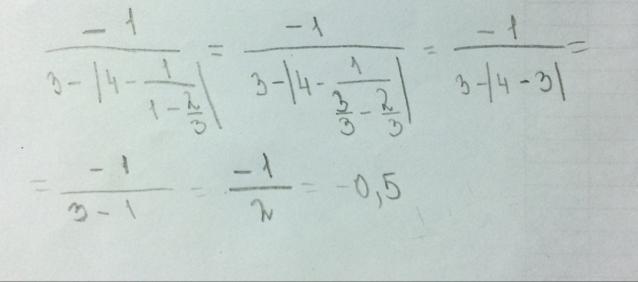 \frac{-1}{3-|4-\frac{1}{1-\frac{2}{3}}|} = \frac{-1}{3-|4-\frac{1}{\frac{3}{3}-\frac{2}{3}}|} = \frac{-1}{3-|4-3|} =
= \frac{-1}{3-1} = \frac{-1}{2} = -0,5